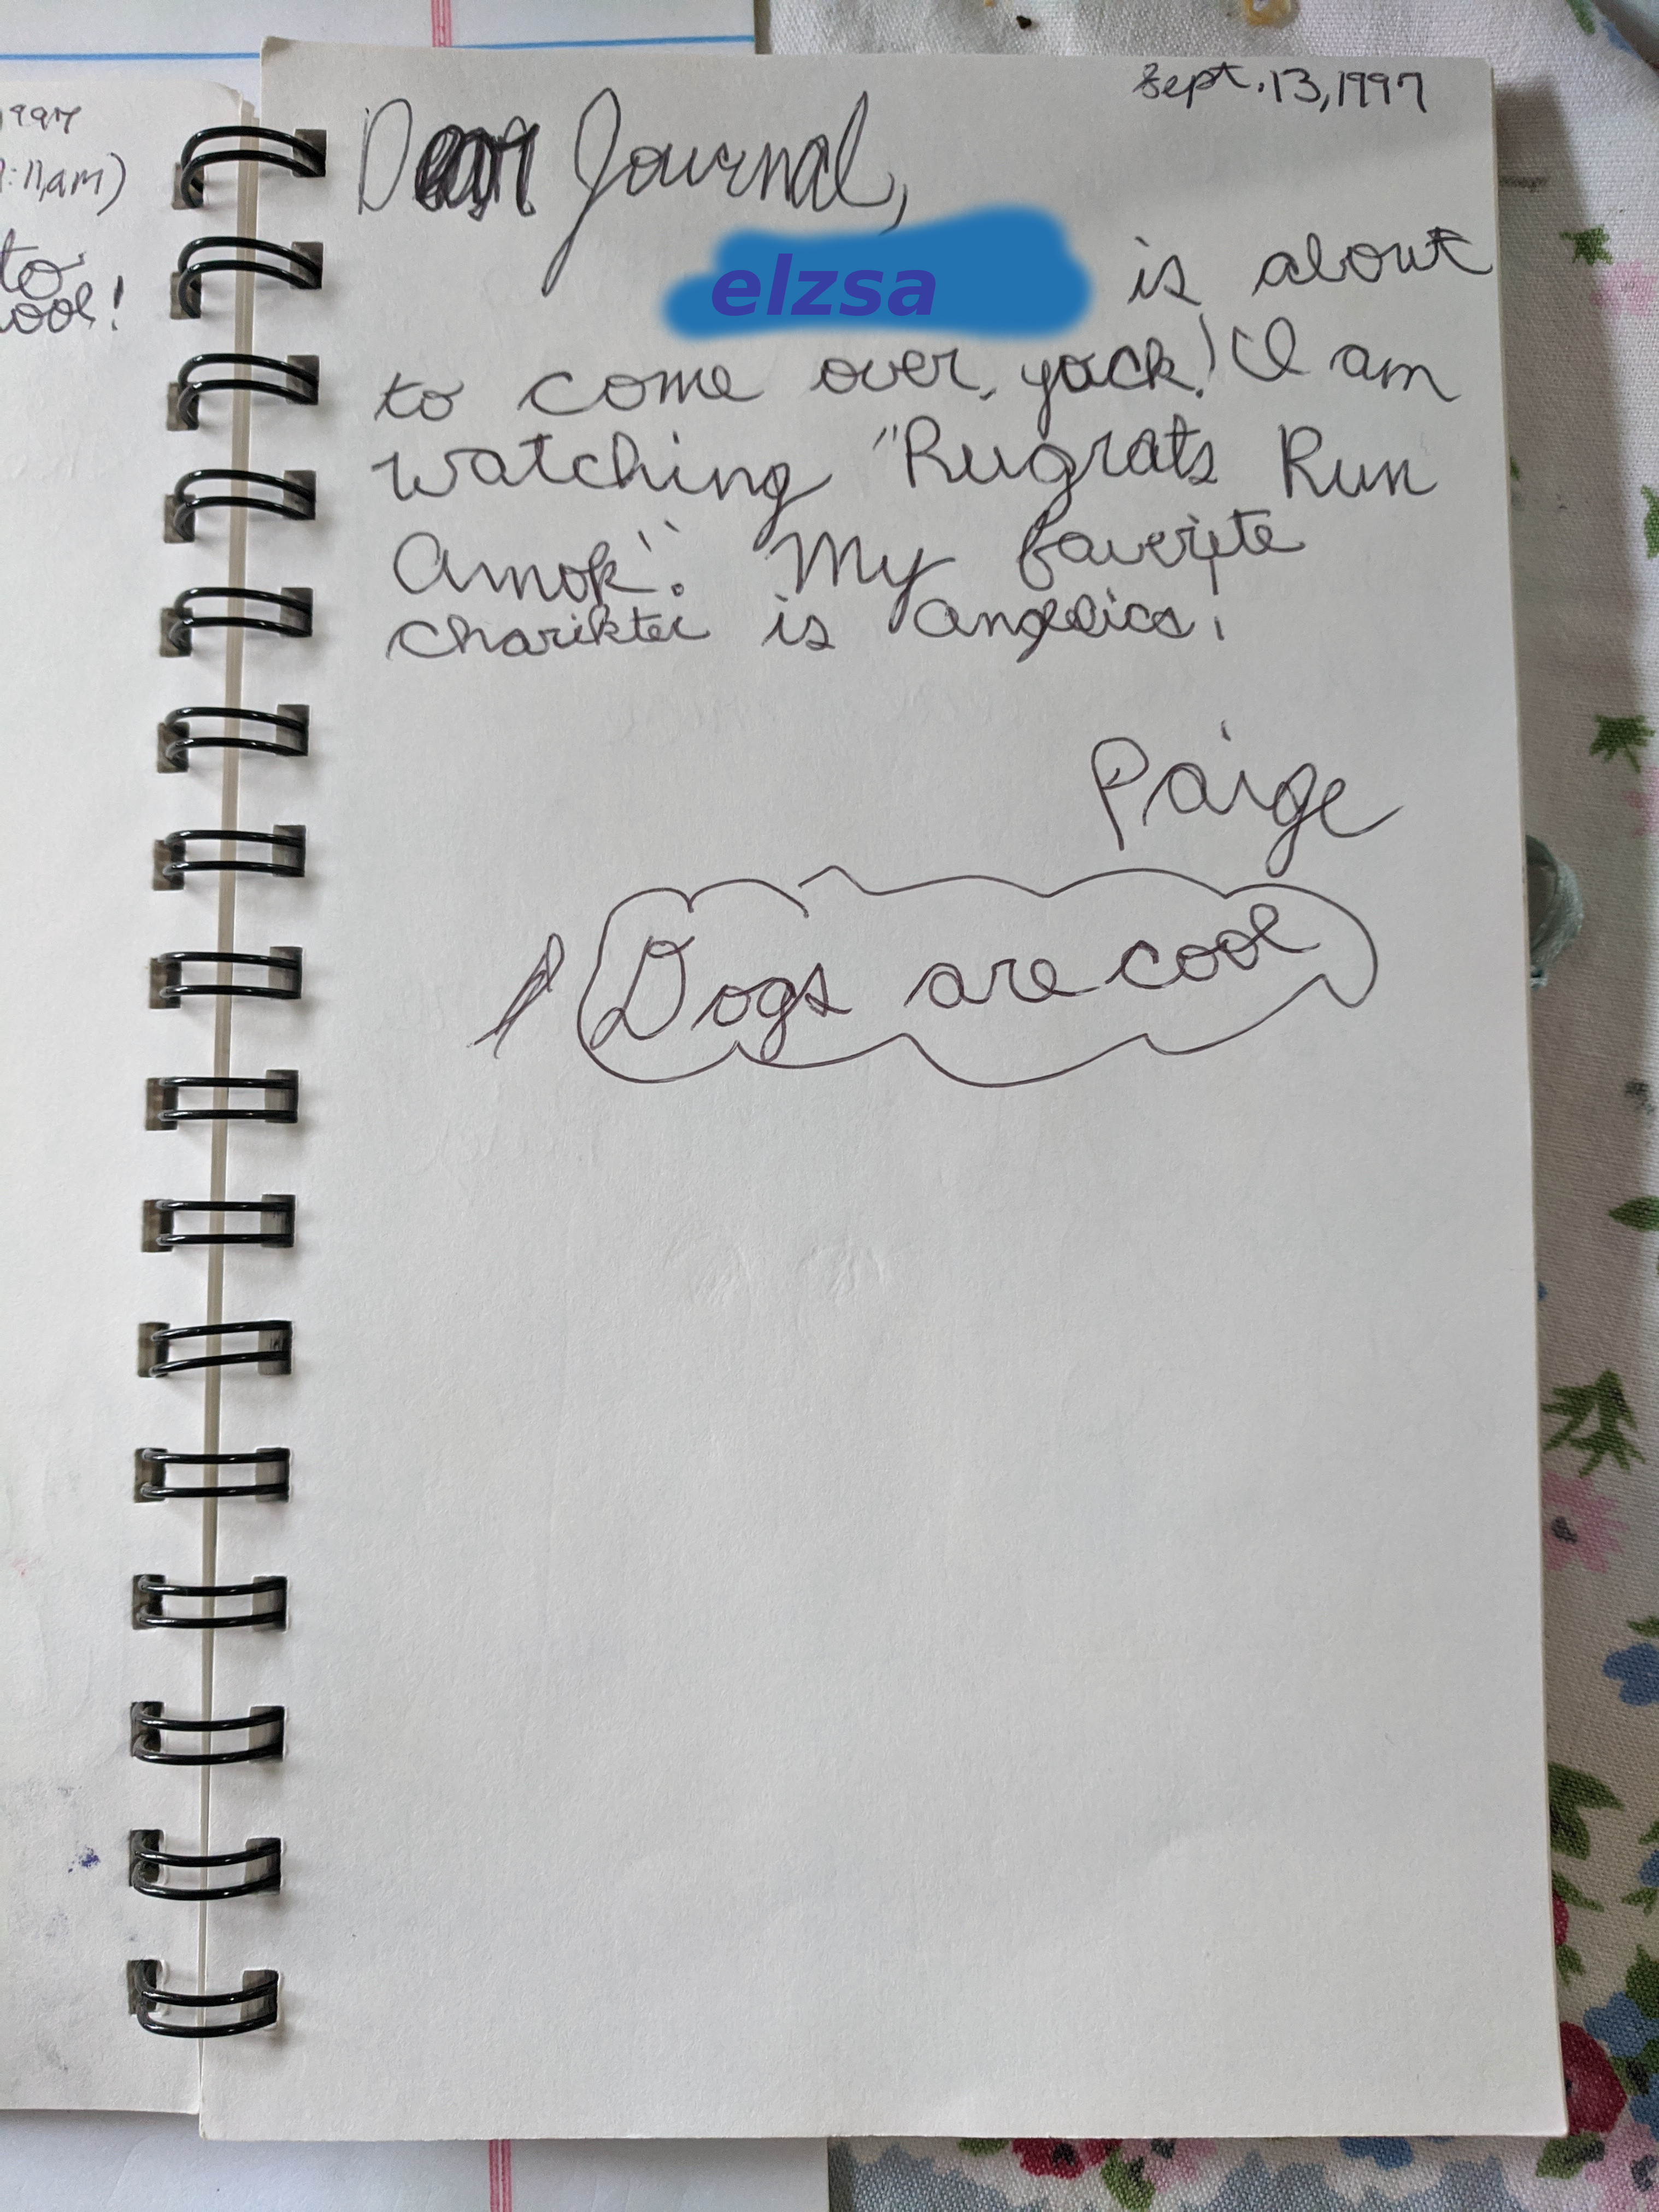 1997
:11am)
to
ool!
Sept. 13, 1997
Dear Journal,
elzsa is about
to come over, yack! I am
watching "Rugrats Run
Amok". My faverite
charikter is Angelica.
Paige
Dogs are cool